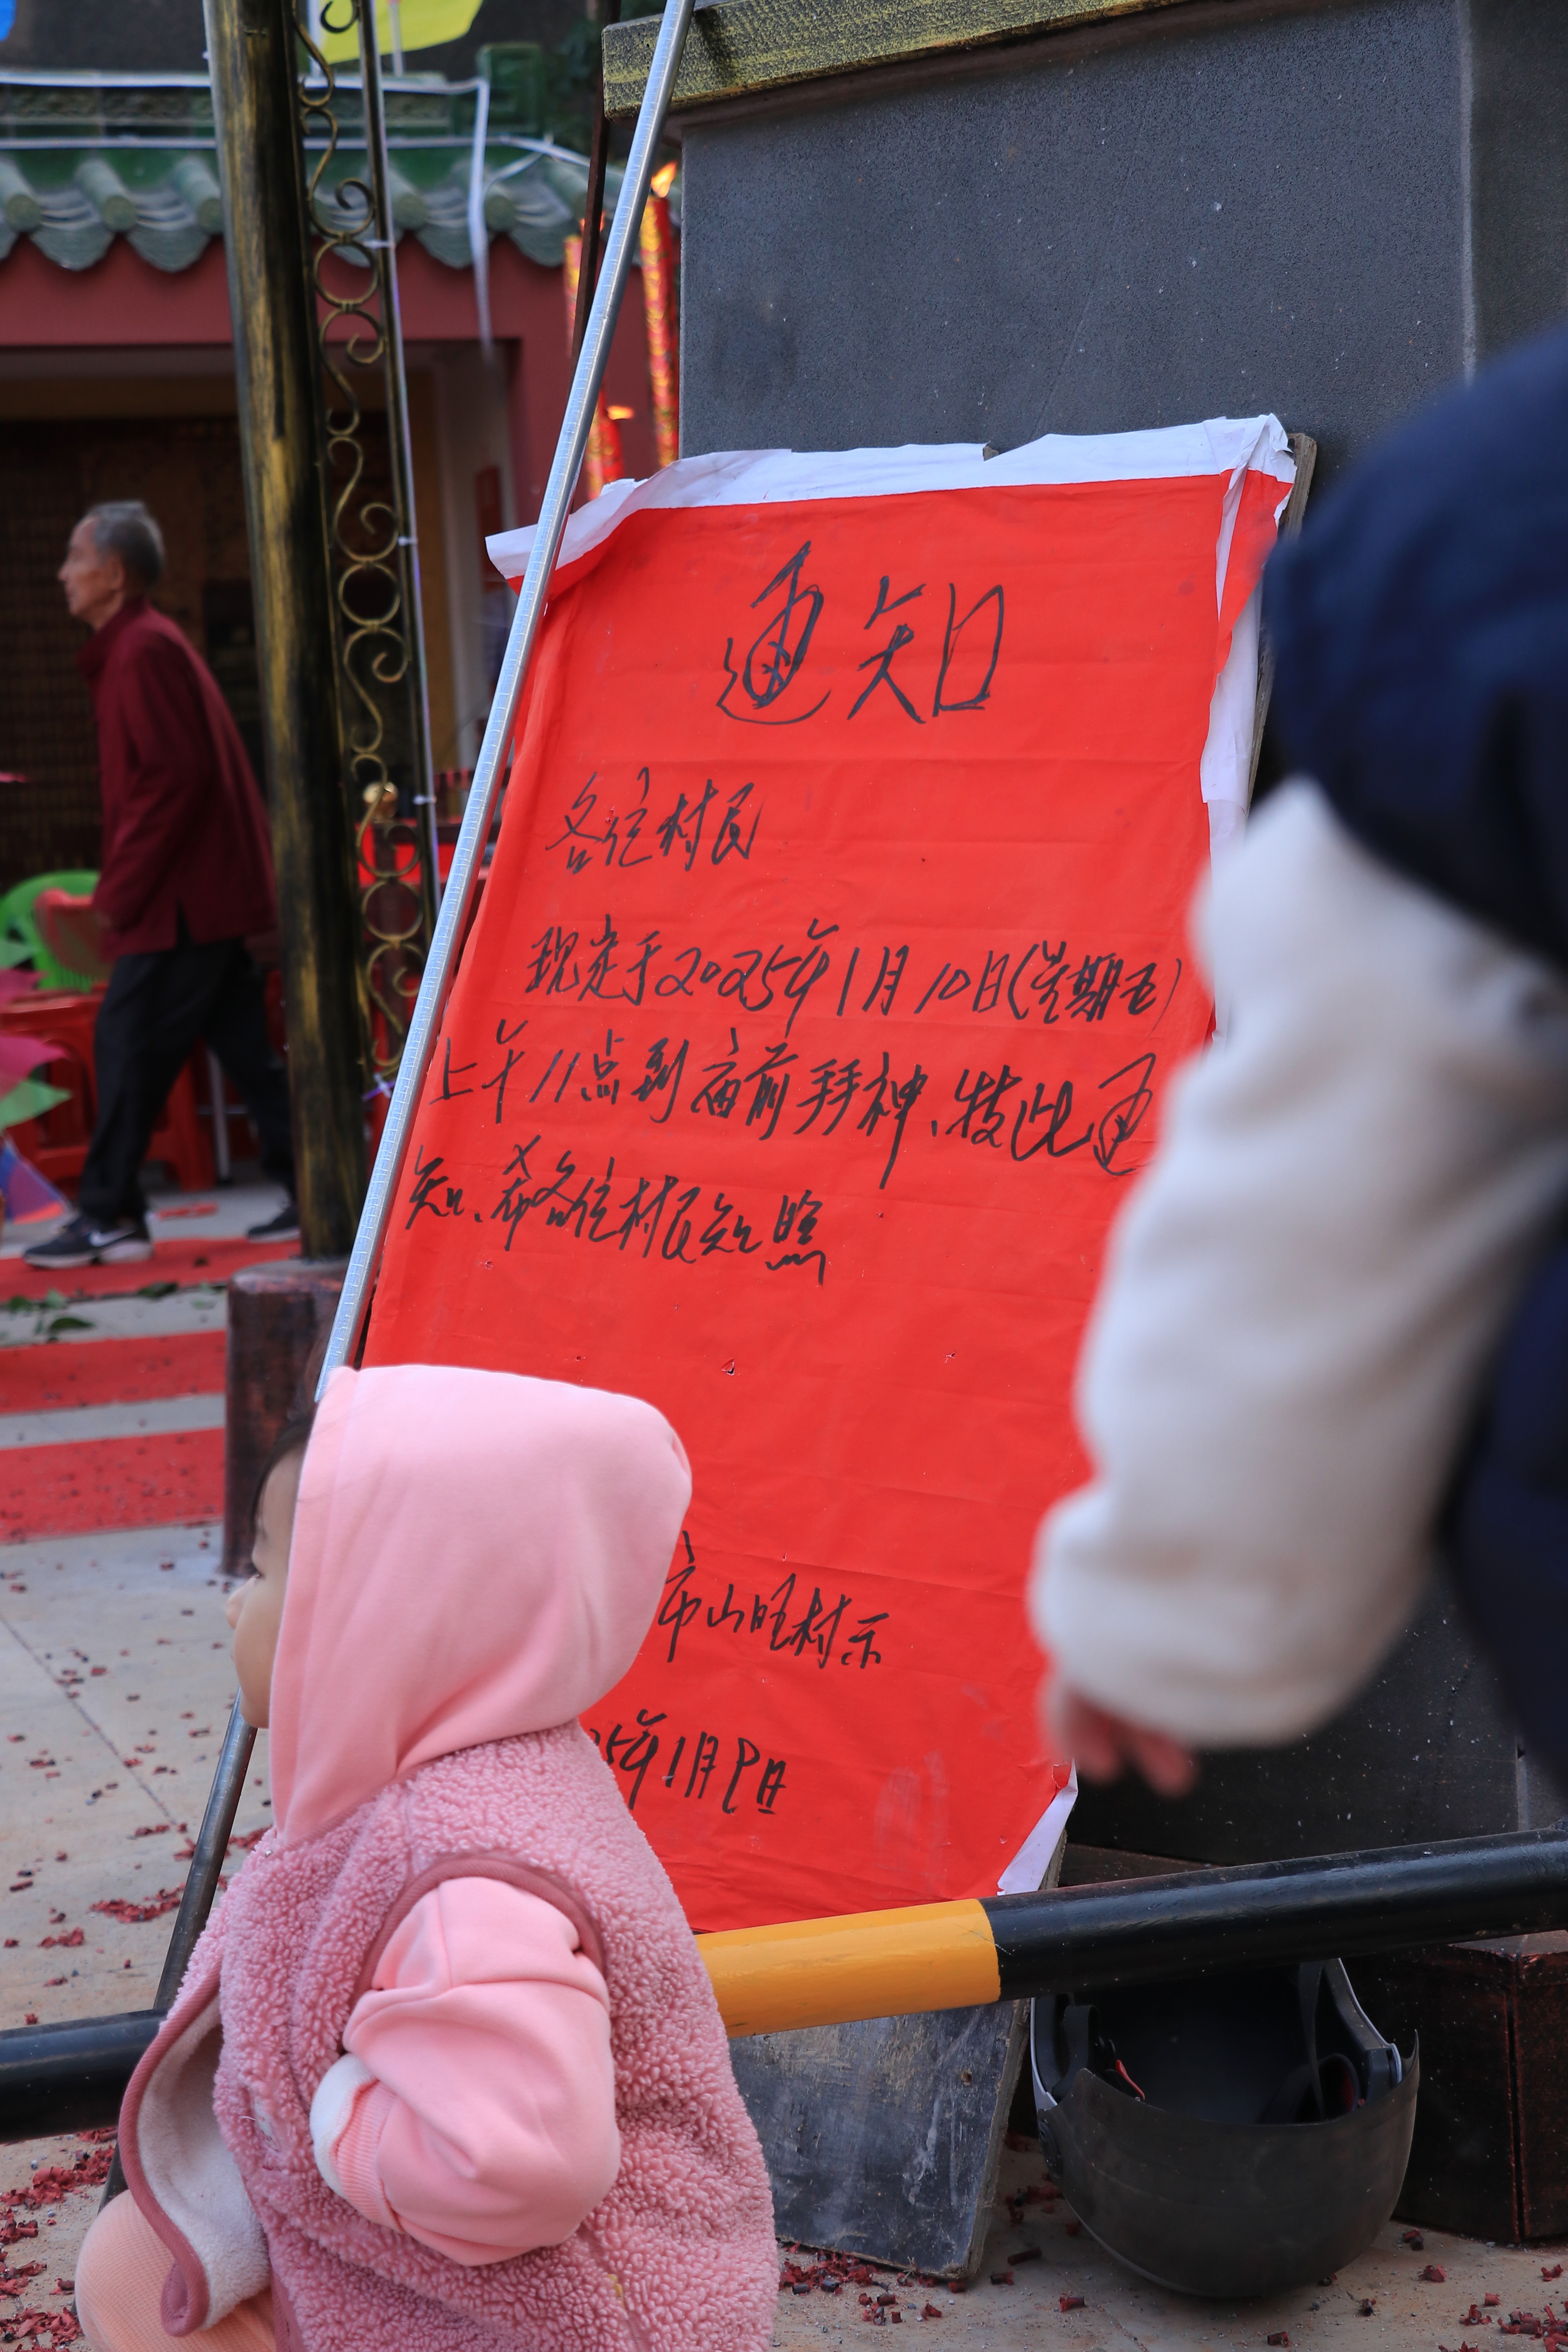 通知
各位村民
现定于2025年1月10日(星期五)
上午11点到庙前拜神、技此通
知、希各位村民知照
市山旺村示
25年1月9日